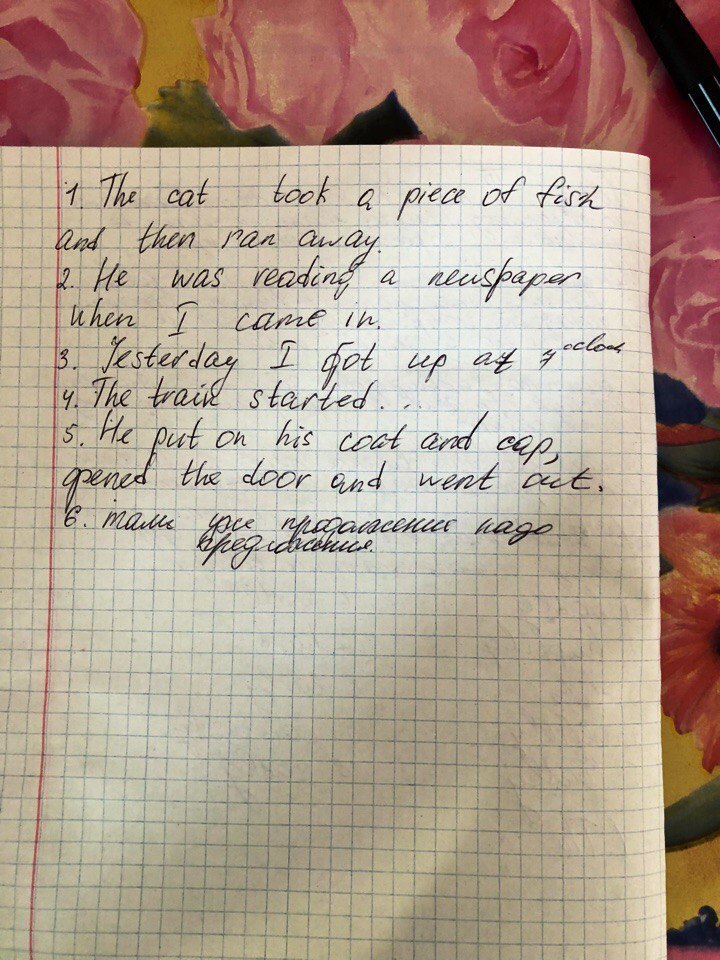 1. The cat took a piece of fish
and then ran away.
2. He was reading a newspaper
when I came in.
3. Yesterday I got up at 7 o'clock
4. The train started...
5. He put on his coat and cap,
opened the door and went out.
6. там уже продолжении надо
предложения.